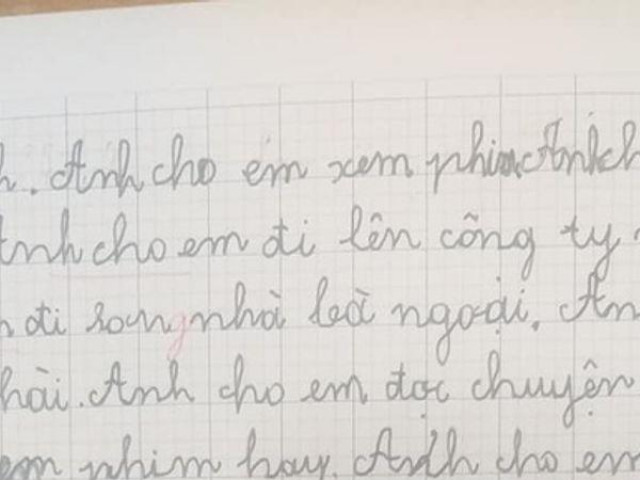 h. Anh cho em xem phim Anh ch
Anh cho em đi lên công ty.
đi sang nhà bà ngoại. An
hài. Anh cho em đọc chuyện
em phim hay. Anh cho em